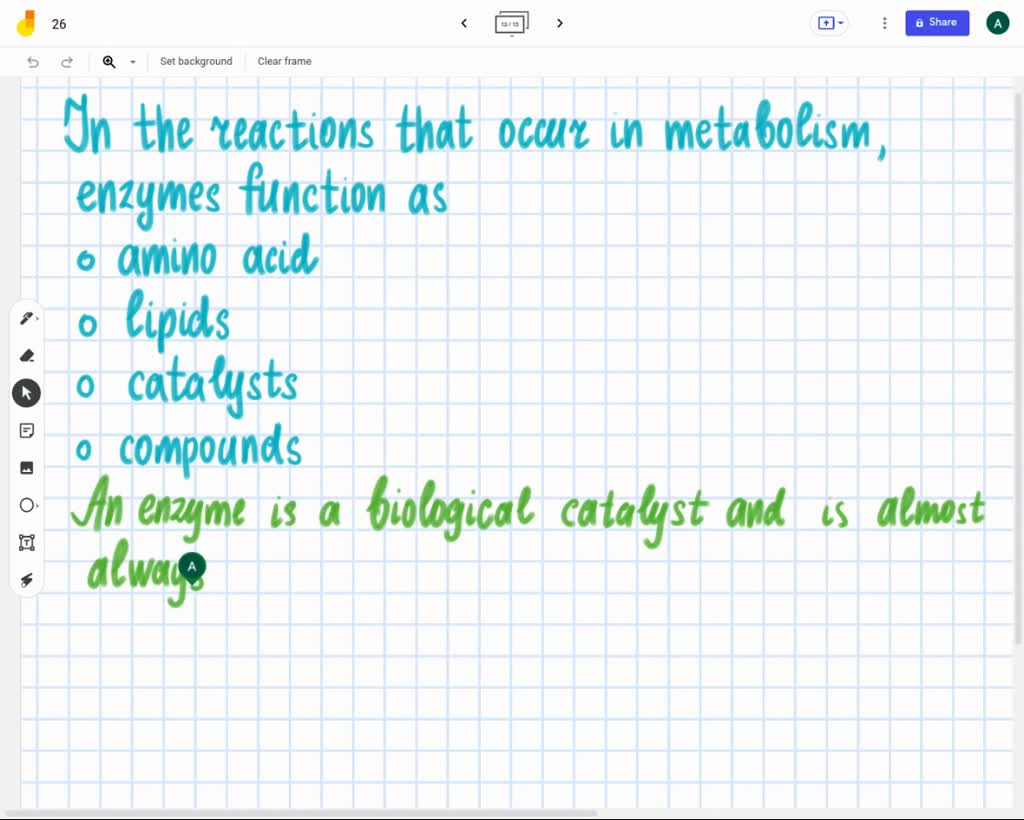 26
13 / 13
Share
A
Set background
Clear frame
In the reactions that occur in metabolism,
enzymes function as
o amino acid
o lipids
o catalysts
o compounds
An enzyme is a biological catalyst and is almost
always
A